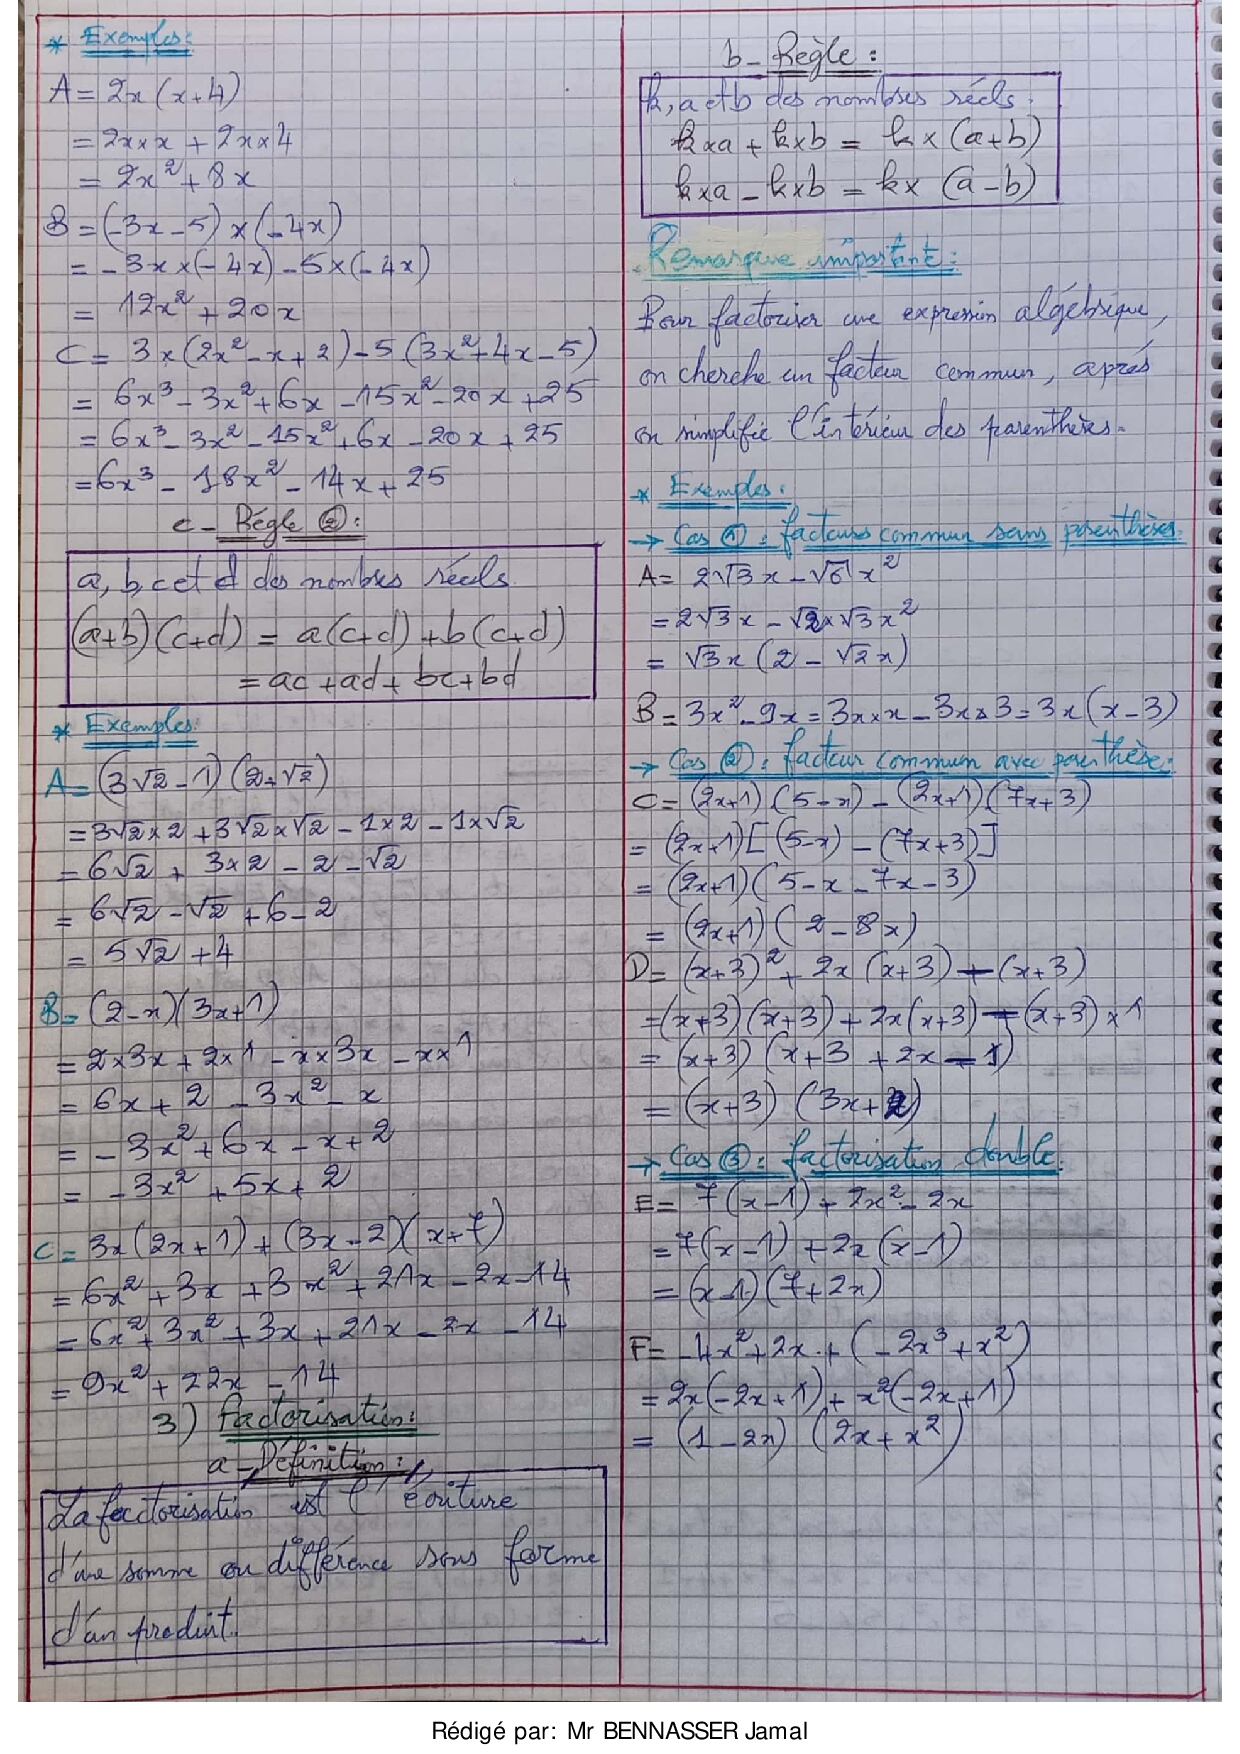 * Exemples:
A = 2x (x+4)
= 2x×x + 2x×4
= 2x² + 8x
B = (-3x - 5) × (-4x)
= -3x×(-4x) - 5×(-4x)
= 12x² + 20x
C = 3x(2x² - x + 2) - 5(3x² + 4x - 5)
= 6x³ - 3x² + 6x - 15x² - 20x + 25
= 6x³ - 3x² - 15x² + 6x - 20x + 25
= 6x³ - 18x² - 14x + 25
c - Régle ②:
a, b, c et d des nombres réels.
(a+b)(c+d) = a(c+d) + b(c+d)
= ac + ad + bc + bd
* Exemples:
A = (3√2 - 1)(2+√2)
= 3√2×2 + 3√2×√2 - 1×2 - 1×√2
= 6√2 + 3×2 - 2 - √2
= 6√2 - √2 + 6 - 2
= 5√2 + 4
B = (2-x)(3x+1)
= 2×3x + 2×1 - x×3x - x×1
= 6x + 2 - 3x² - x
= -3x² + 6x - x + 2
= -3x² + 5x + 2
C = 3x(2x+1) + (3x-2)(x+7)
= 6x² + 3x + 3x² + 21x - 2x - 14
= 6x² + 3x² + 3x + 21x - 2x - 14
= 9x² + 22x - 14
3) Factorisation:
a - Définition:
La factorisation est l'écriture
d'une somme ou différence sous forme
d'un produit.
b - Règle:
k, a et b des nombres réels.
k×a + k×b = k×(a+b)
k×a - k×b = k×(a-b)
Remarque importante:
Pour factoriser une expression algébrique,
on cherche un facteur commun, après
on simplifie l'intérieur des parenthèses.
* Exemples:
→ Cas ①: facteurs commun sans parenthèses.
A = 2√3x - √6x²
= 2√3x - √2×√3x²
= √3x (2 - √2x)
B = 3x² - 9x = 3x×x - 3x×3 = 3x(x-3)
→ Cas ②: facteur commun avec parenthèse:
C = (2x+1)(5-x) - (2x+1)(7x+3)
= (2x+1)[(5-x) - (7x+3)]
= (2x+1)(5-x-7x-3)
= (2x+1)(2-8x)
D = (x+3)² + 2x(x+3) - (x+3)
= (x+3)(x+3) + 2x(x+3) - (x+3)×1
= (x+3)(x+3+2x-1)
= (x+3)(3x+2)
→ Cas ③: factorisation double.
E = 7(x-1) + 2x² - 2x
= 7(x-1) + 2x(x-1)
= (x-1)(7+2x)
F = -4x² + 2x + (-2x³ + x²)
= 2x(-2x+1) + x²(-2x+1)
= (1-2x)(2x+x²)
Rédigé par: Mr BENNASSER Jamal